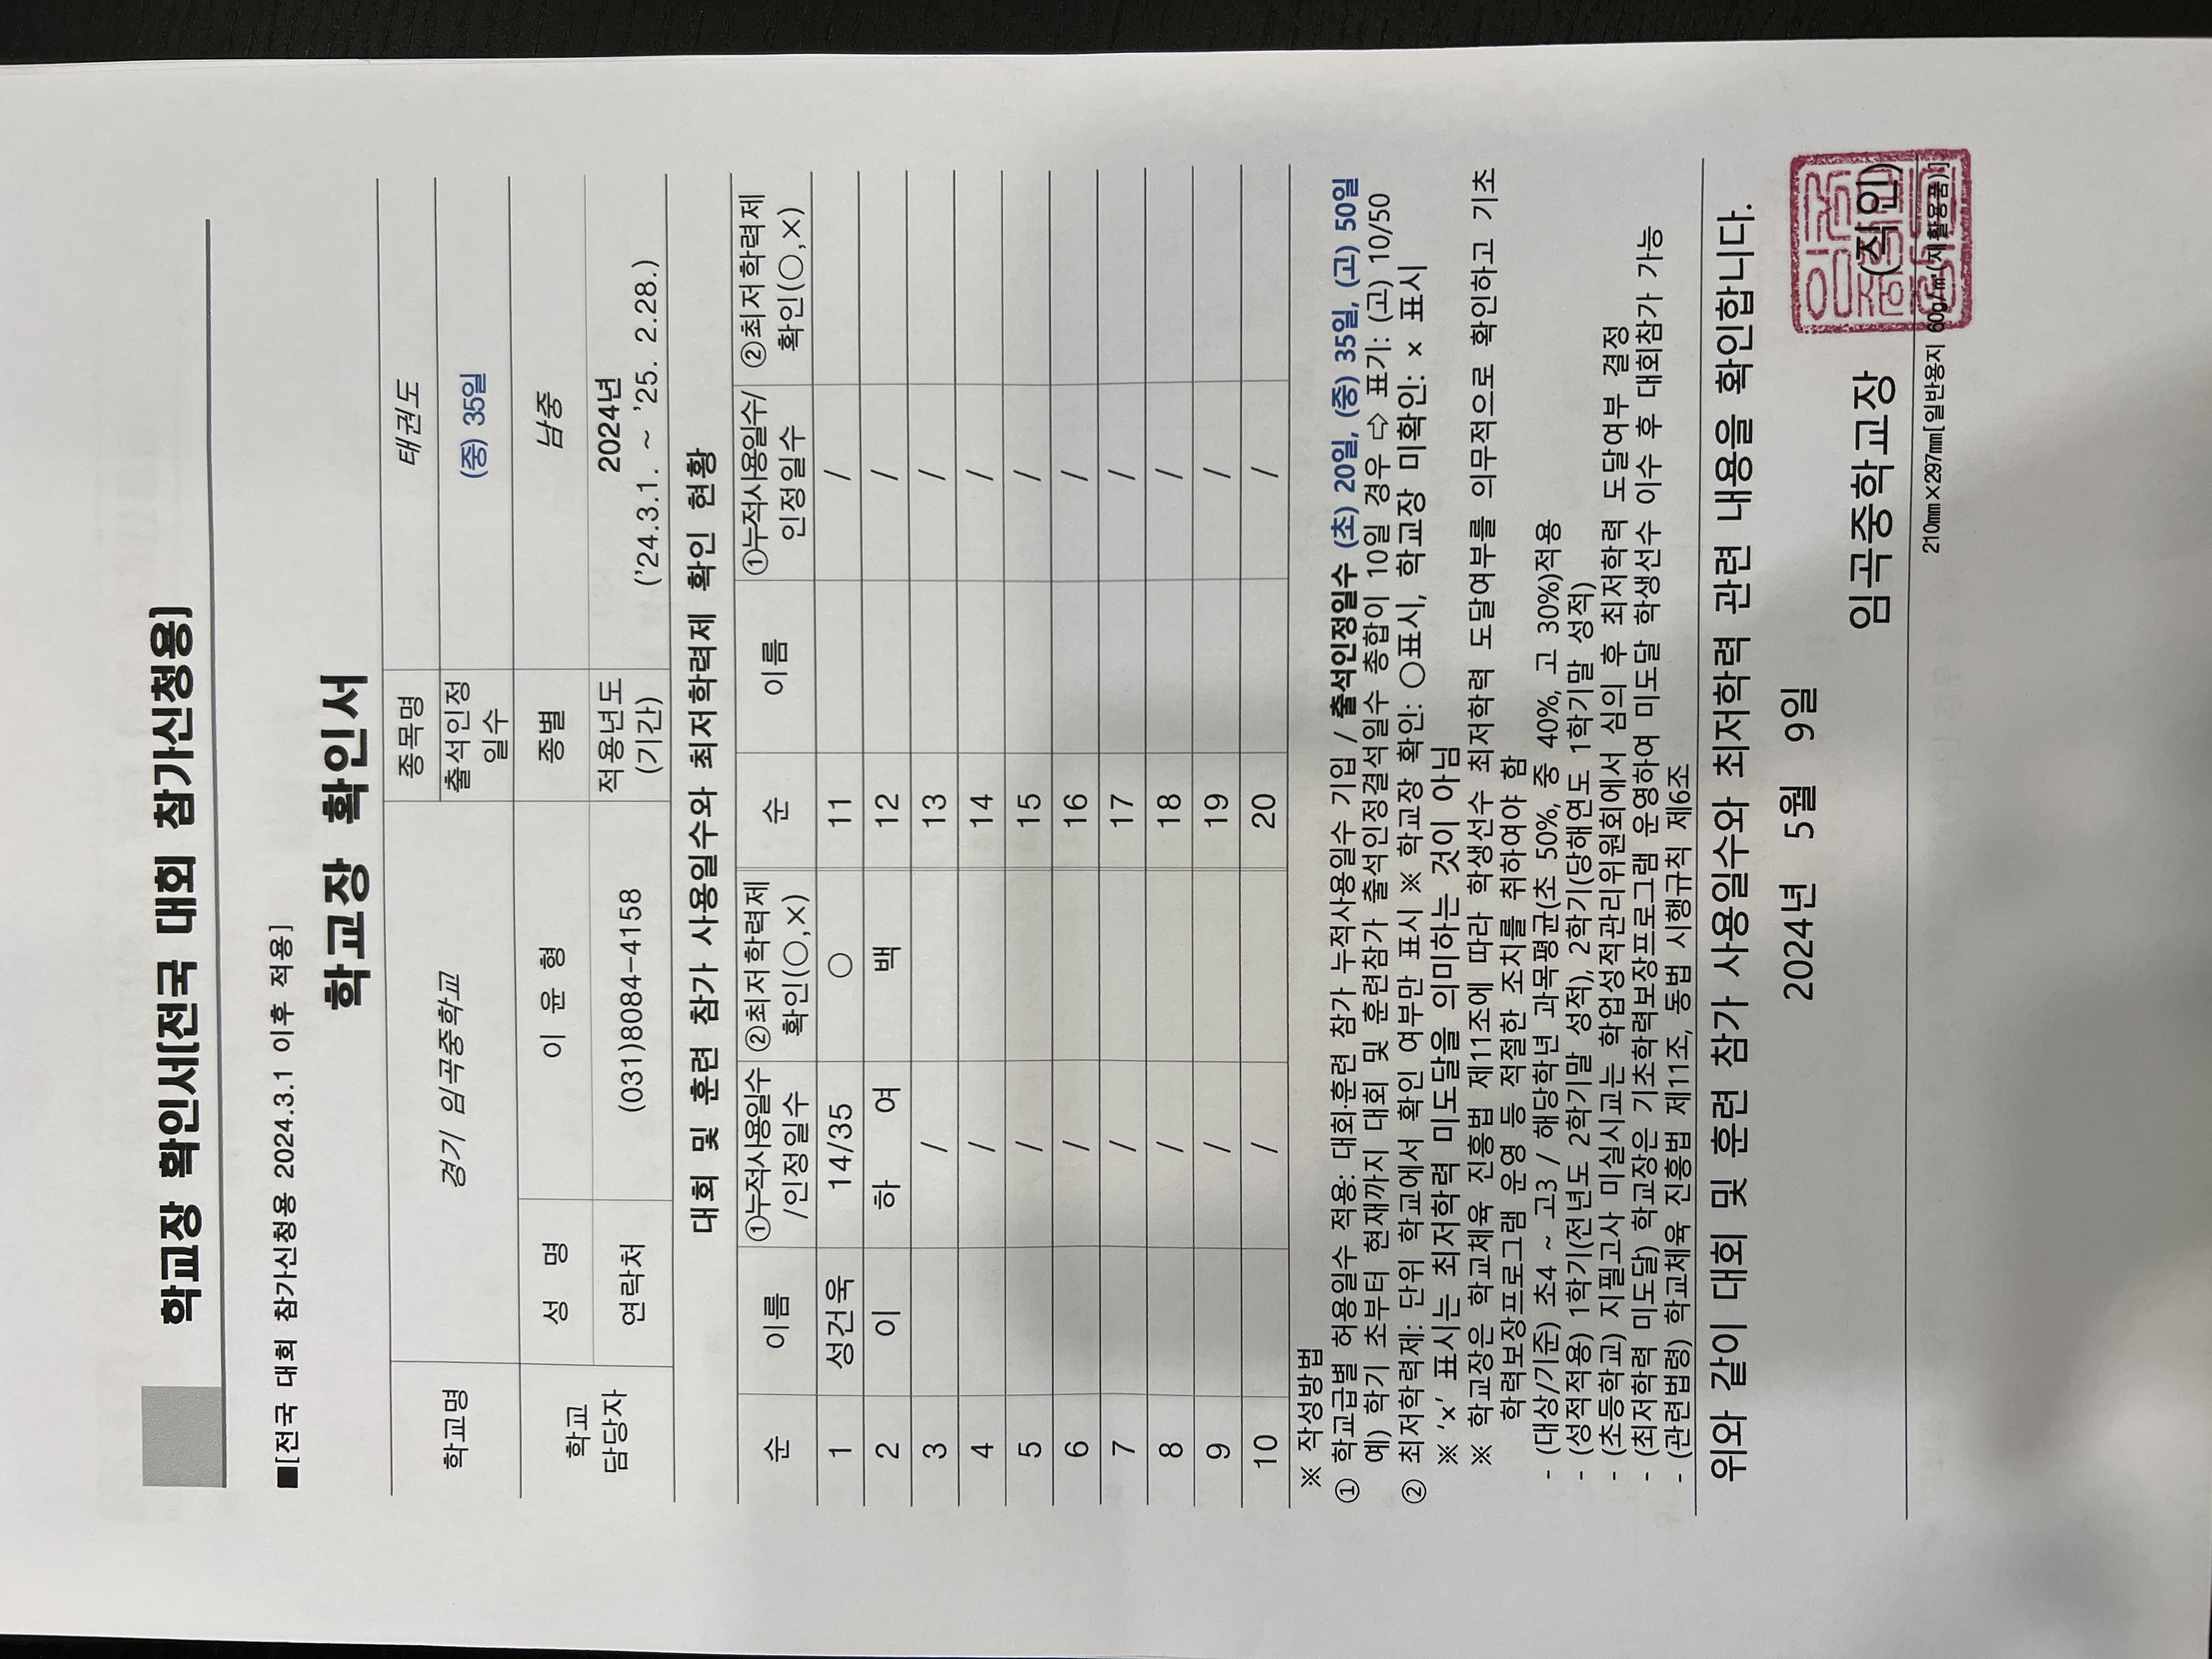 학교장 확인서[전국 대회 참가신청용]
■[전국 대회 참가신청용 2024.3.1 이후 적용]
학교장 확인서
학교명 경기 임곡중학교 종목명 태권도
출석인정 일수 (중) 35일
학교 담당자 성 명 이 윤 형 종별 남중
연락처 (031)8084-4158 적용년도 (기간) 2024년
('24.3.1. ~ '25. 2.28.)
대회 및 훈련 참가 사용일수와 최저학력제 확인 현황
순 이름 ①누적사용일수 /인정일수 ②최저학력제 확인(○,×) 순 이름 ①누적사용일수/ 인정일수 ②최저학력제 확인(○,×)
1 성건욱 14/35 ○ 11 /
2 이 하 여 백 12 /
3 / 13 /
4 / 14 /
5 / 15 /
6 / 16 /
7 / 17 /
8 / 18 /
9 / 19 /
10 / 20 /
※ 작성방법
① 학교급별 허용일수 적용: 대회·훈련 참가 누적사용일수 기입 / 출석인정일수 (초) 20일, (중) 35일, (고) 50일
예) 학기 초부터 현재까지 대회 및 훈련참가 출석인정결석일수 총합이 10일 경우 ⇨ 표기: (고) 10/50
② 최저학력제: 단위 학교에서 확인 여부만 표시 ※ 학교장 확인: ○표시, 학교장 미확인: × 표시
※ '×' 표시는 최저학력 미도달을 의미하는 것이 아님
※ 학교장은 학교체육 진흥법 제11조에 따라 학생선수 최저학력 도달여부를 의무적으로 확인하고 기초
학력보장프로그램 운영 등 적절한 조치를 취하여야 함
- (대상/기준) 초4 ~ 고3 / 해당학년 과목평균(초 50%, 중 40%, 고 30%)적용
- (성적적용) 1학기(전년도 2학기말 성적), 2학기(당해연도 1학기말 성적)
- (초등학교) 지필고사 미실시교는 학업성적관리위원회에서 심의 후 최저학력 도달여부 결정
- (최저학력 미도달) 학교장은 기초학력보장프로그램 운영하여 미도달 학생선수 이수 후 대회참가 가능
- (관련법령) 학교체육 진흥법 제11조, 동법 시행규칙 제6조
위와 같이 대회 및 훈련 참가 사용일수와 최저학력 관련 내용을 확인합니다.
2024년 5월 9일
임곡중학교장 (직인)
210mm×297mm[일반용지 60g/㎡(재활용품)]